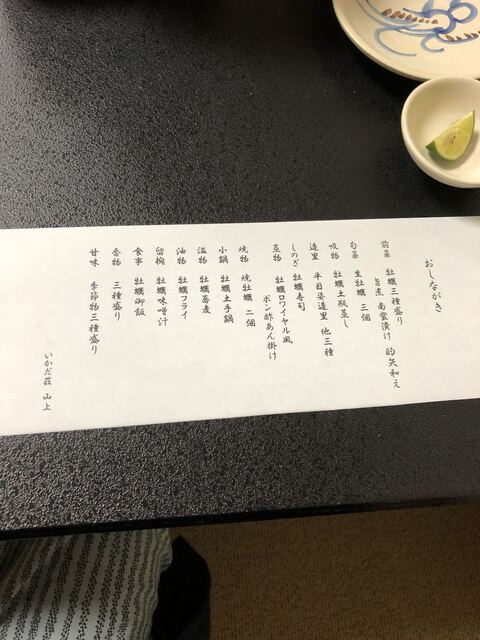 おしながき
前菜 牡蠣三種盛り
旨煮 南蛮漬け 的矢和え
旬菜 生牡蠣 三個
吸物 牡蠣土瓶蒸し
造里 平目姿造里 他三種
しのぎ 牡蠣寿司
蒸物 牡蠣ロワイヤル風
ポン酢あん掛け
焼物 焼牡蠣 二個
小鍋 牡蠣土手鍋
温物 牡蠣蕎麦
油物 牡蠣フライ
留椀 牡蠣味噌汁
食事 牡蠣御飯
香物 三種盛り
甘味 季節物三種盛り
いかだ荘 山上